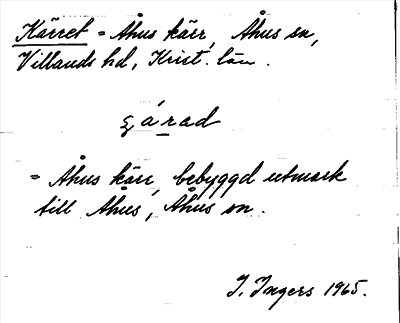 Kärret = Åhus kärr, Åhus sn,
Villands hd, Krist. län.
ɕárad
= Åhus kärr, bebyggd utmark
till Åhus, Åhus sn.
I. Ingers 1965.